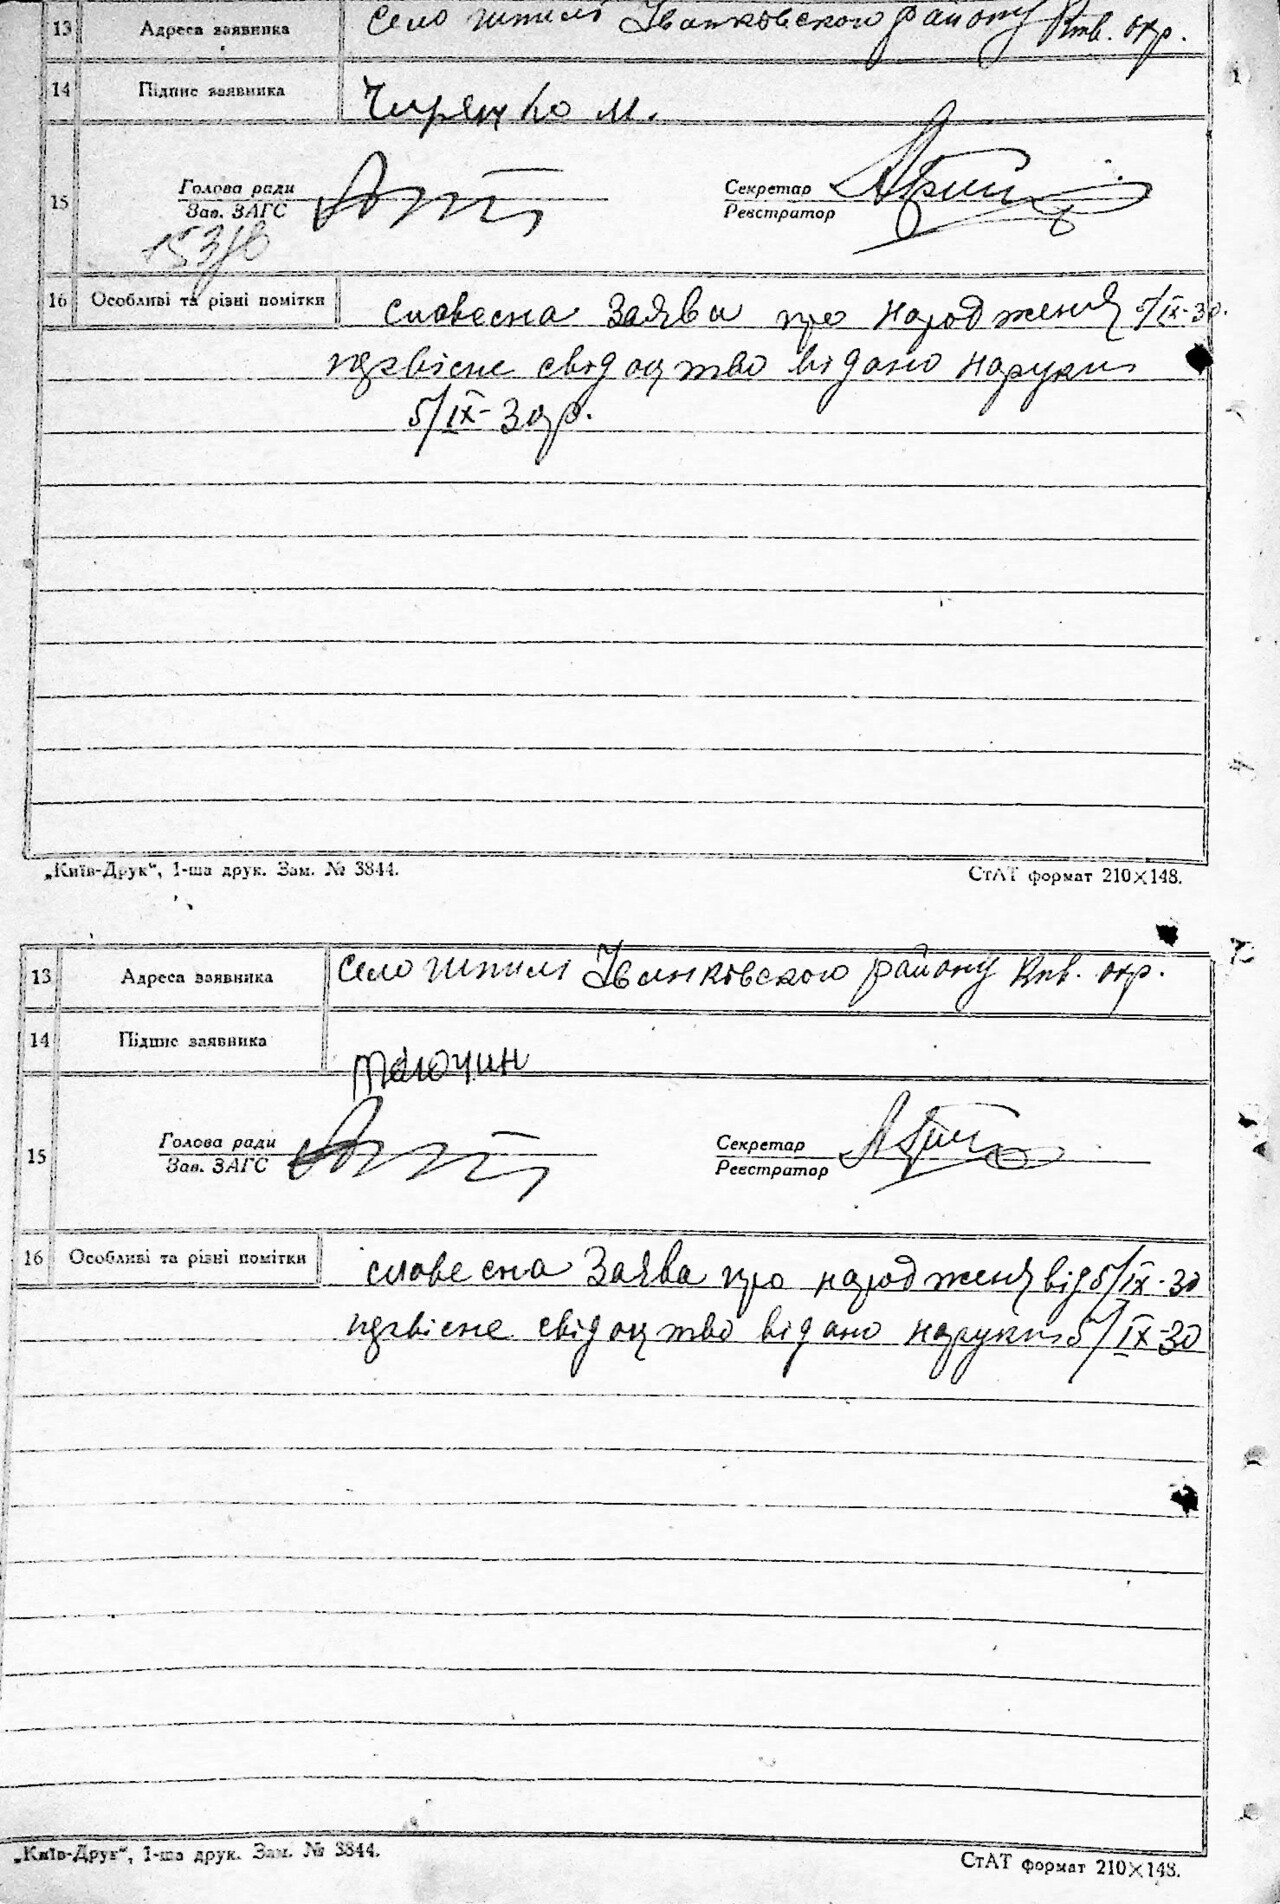 13 Адреса заявника село шпилі Іванковского району Киів. окр.
14 Підпис заявника Чиренко М.
15 Голова ради Секретар
Зав. ЗАГС Реєстратор
153/8
16 Особливі та різні помітки словесна заява про народженя 5/IX-30.
первісне свідоцтво відано наруки
5/IX-30р.
„Київ-Друк“, 1-ша друк. Зам. № 3844. СтАТ формат 210×148.
13 Адреса заявника Село шпилі Іванковского району Киів. окр.
14 Підпис заявника
15 Голова ради Секретар
Зав. ЗАГС Реєстратор
16 Особливі та різні помітки словесна заява про народженя від 5/IX-30
первісне свідоцтво відано наруки 5/IX-30
„Київ-Друк“, 1-ша друк. Зам. № 3844. СтАТ формат 210×148.